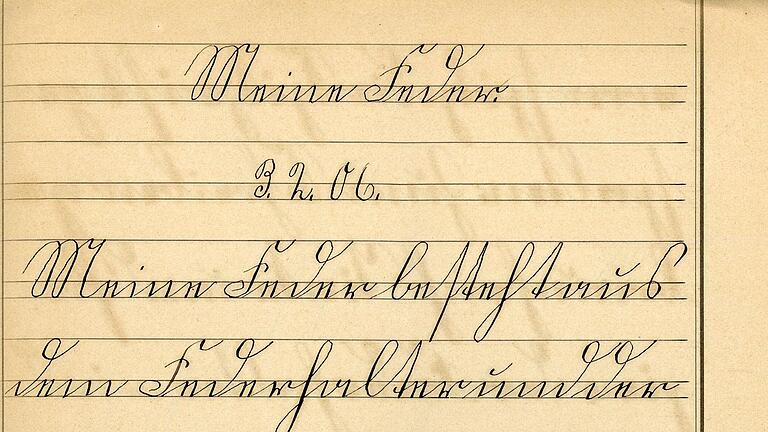 Meine Feder.
3. 2. 06.
Meine Feder besteht aus
dem Federhalter und der